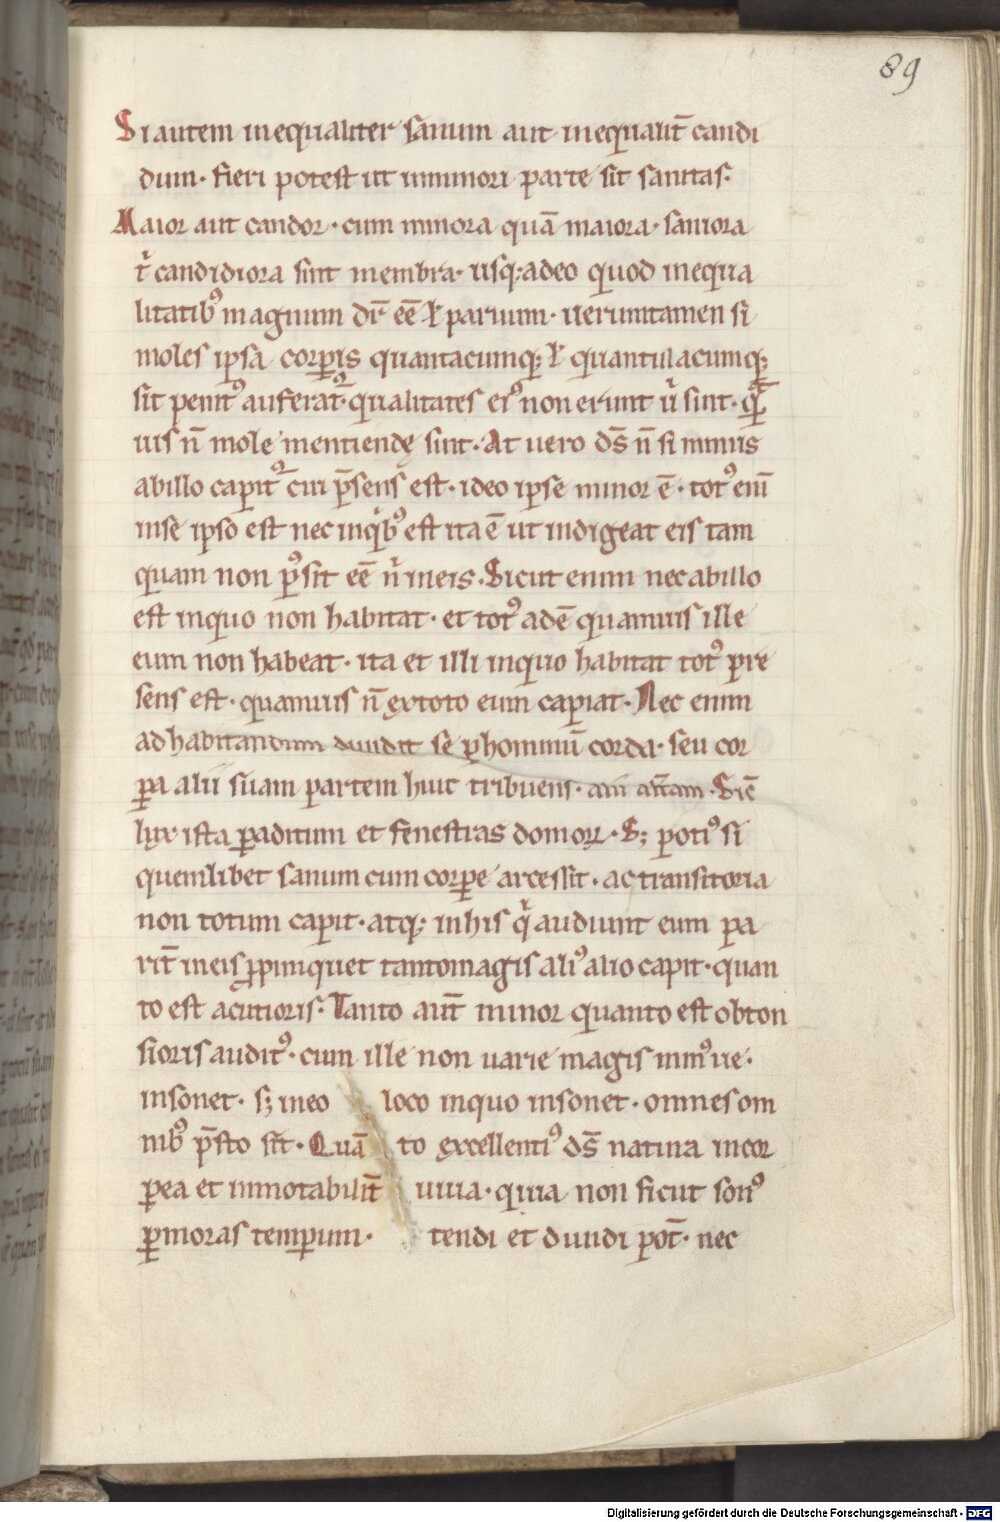 89
Si autem inequaliter sanum aut inequalit̄ candi
dum· fieri potest ut in minori parte sit sanitas·
Maior aut candor· cum minora quā maiora· saniora
ł candidiora sint membra· usq; adeo quod inequa
litatib᷒ magnum dr̄ eē ł paruum· uerumtamen si
moles ipsa corꝑis quantacumq; ł quantulacumq;
sit penit᷒ auferat᷒· qualitates ei᷒ non erunt ů sint· q̄
uis n̄ mole mentiendę sint· At uero ds̄ n̄ si minus
ab illo capit᷒ cui p̄sens est· ideo ipse minor ē· tot᷒ enī
in se ipso est nec in qͥb᷒ est ita ē ut indigeat eis tam
quam non p᷒sit eē nͥ in eis· Sicut enim nec ab illo
est in quo non habitat· et tot᷒ adē quamuis ille
eum non habeat· ita et illi in quo habitat tot᷒ pre
sens est· quamuis n̄ ex toto eum capiat· Nec enim
ad habitandum diuidit se ꝑ hominū corda· seu cor
ꝑa alii suam partem huic tribuens· alii
lux ista ꝑ aditum et fenestras domoꝝ· S; poti᷒ si
quemlibet sanum cum corꝑe arcessit· ac transitoria
non totum capit· atq; in his qͥ audiunt eum pa
rit̄ in eis ꝓpinquet tanto magis ali᷒ alio capit· quan
to est acutioris· Tanto aut̄ minor quanto est obton
sioris audit᷒· cum ille non uarie magis min᷒ue·
insonet· s; in eo loco in quo insonet· omnes om
nib᷒ p̄sto sit· Quā to excellenti᷒ ds̄ natura incor
ꝑea et inmotabilit̄ uiua· quia non sicut son᷒
ꝑ moras temꝑum· tendi et diuidi pot̄· nec
Digitalisierung gefördert durch die Deutsche Forschungsgemeinschaft · DFG